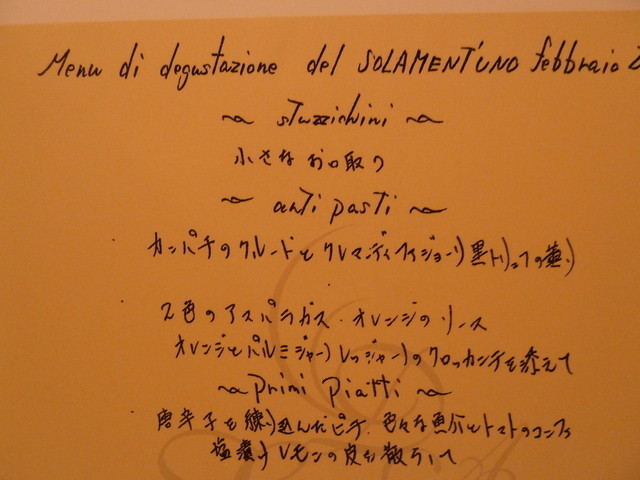 Menu di degustazione del SOLAMENT'UNO febbraio 2
~ stuzzichini ~
小さなお口取り
~ anti pasti ~
カンパチのクルードとクレマディファジョーリ 黒トリュフの薫り
2色のアスパラガス・オレンジのソース
オレンジとパルミジャーノレッジャーノのクロッカンテを添えて
~ primi piatti ~
唐辛子を練り込んだピチ、色々な魚介とトマトのコンフィ
塩漬けレモンの皮を散らして